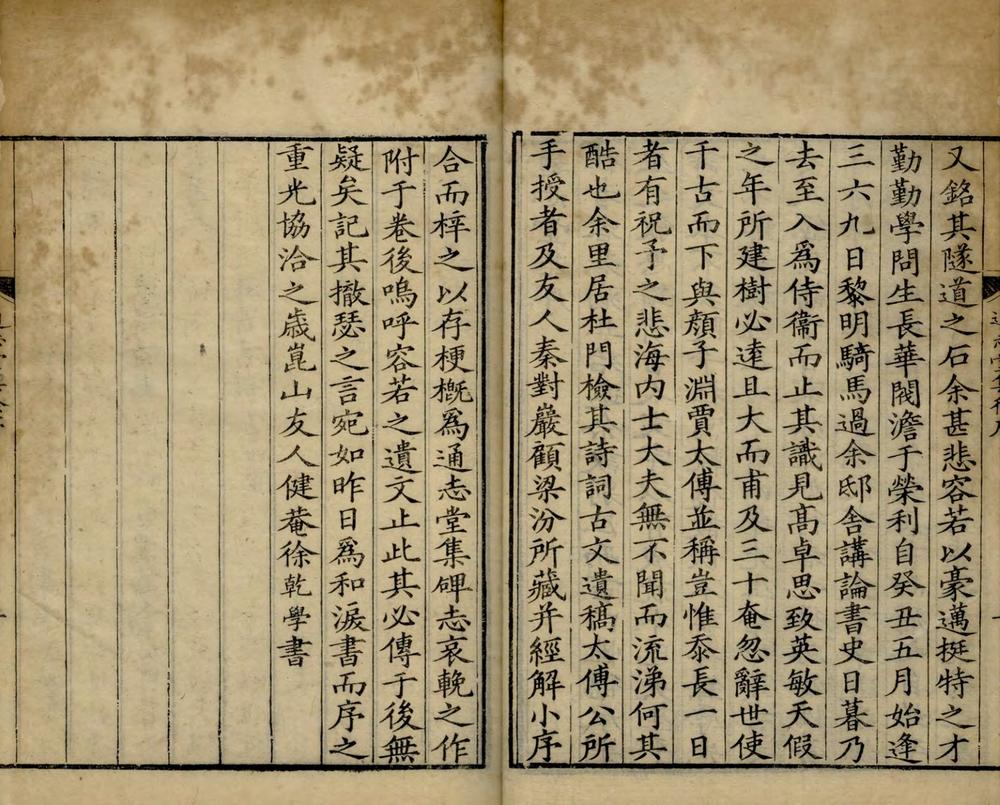 又銘其隧道之石余甚悲容若以豪邁挺特之才
勤勤學問生長華閥澹于榮利自癸丑五月始逢
三六九日黎明騎馬過余邸舍講論書史日暮乃
去至入爲侍衞而止其識見高卓思致英敏天假
之年所建樹必遠且大而甫及三十奄忽辭世使
千古而下與顔子淵賈太傅並稱豈惟忝長一日
者有祝予之悲海内士大夫無不聞而流涕何其
酷也余里居杜門檢其詩詞古文遺稿太傅公所
手授者及友人秦對巖顧梁汾所藏并經解小序
合而梓之以存梗槪爲通志堂集碑志哀輓之作
附于卷後嗚呼容若之遺文止此其必傳于後無
疑矣記其撤瑟之言宛如昨日爲和淚書而序之
重光協洽之歲崑山友人健菴徐乾學書